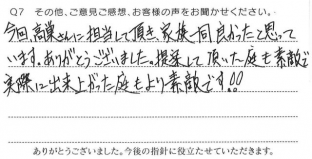 Q7 その他、ご意見ご感想、お客様の声をお聞かせください。
今回、高巣さんに担当して頂き、家族一同良かったと思って
います。ありがとうございました。提案して頂いた庭も素敵で
実際に出来上がった庭もより素敵です!!
ありがとうございました。今後の指針に役立たせていただきます。